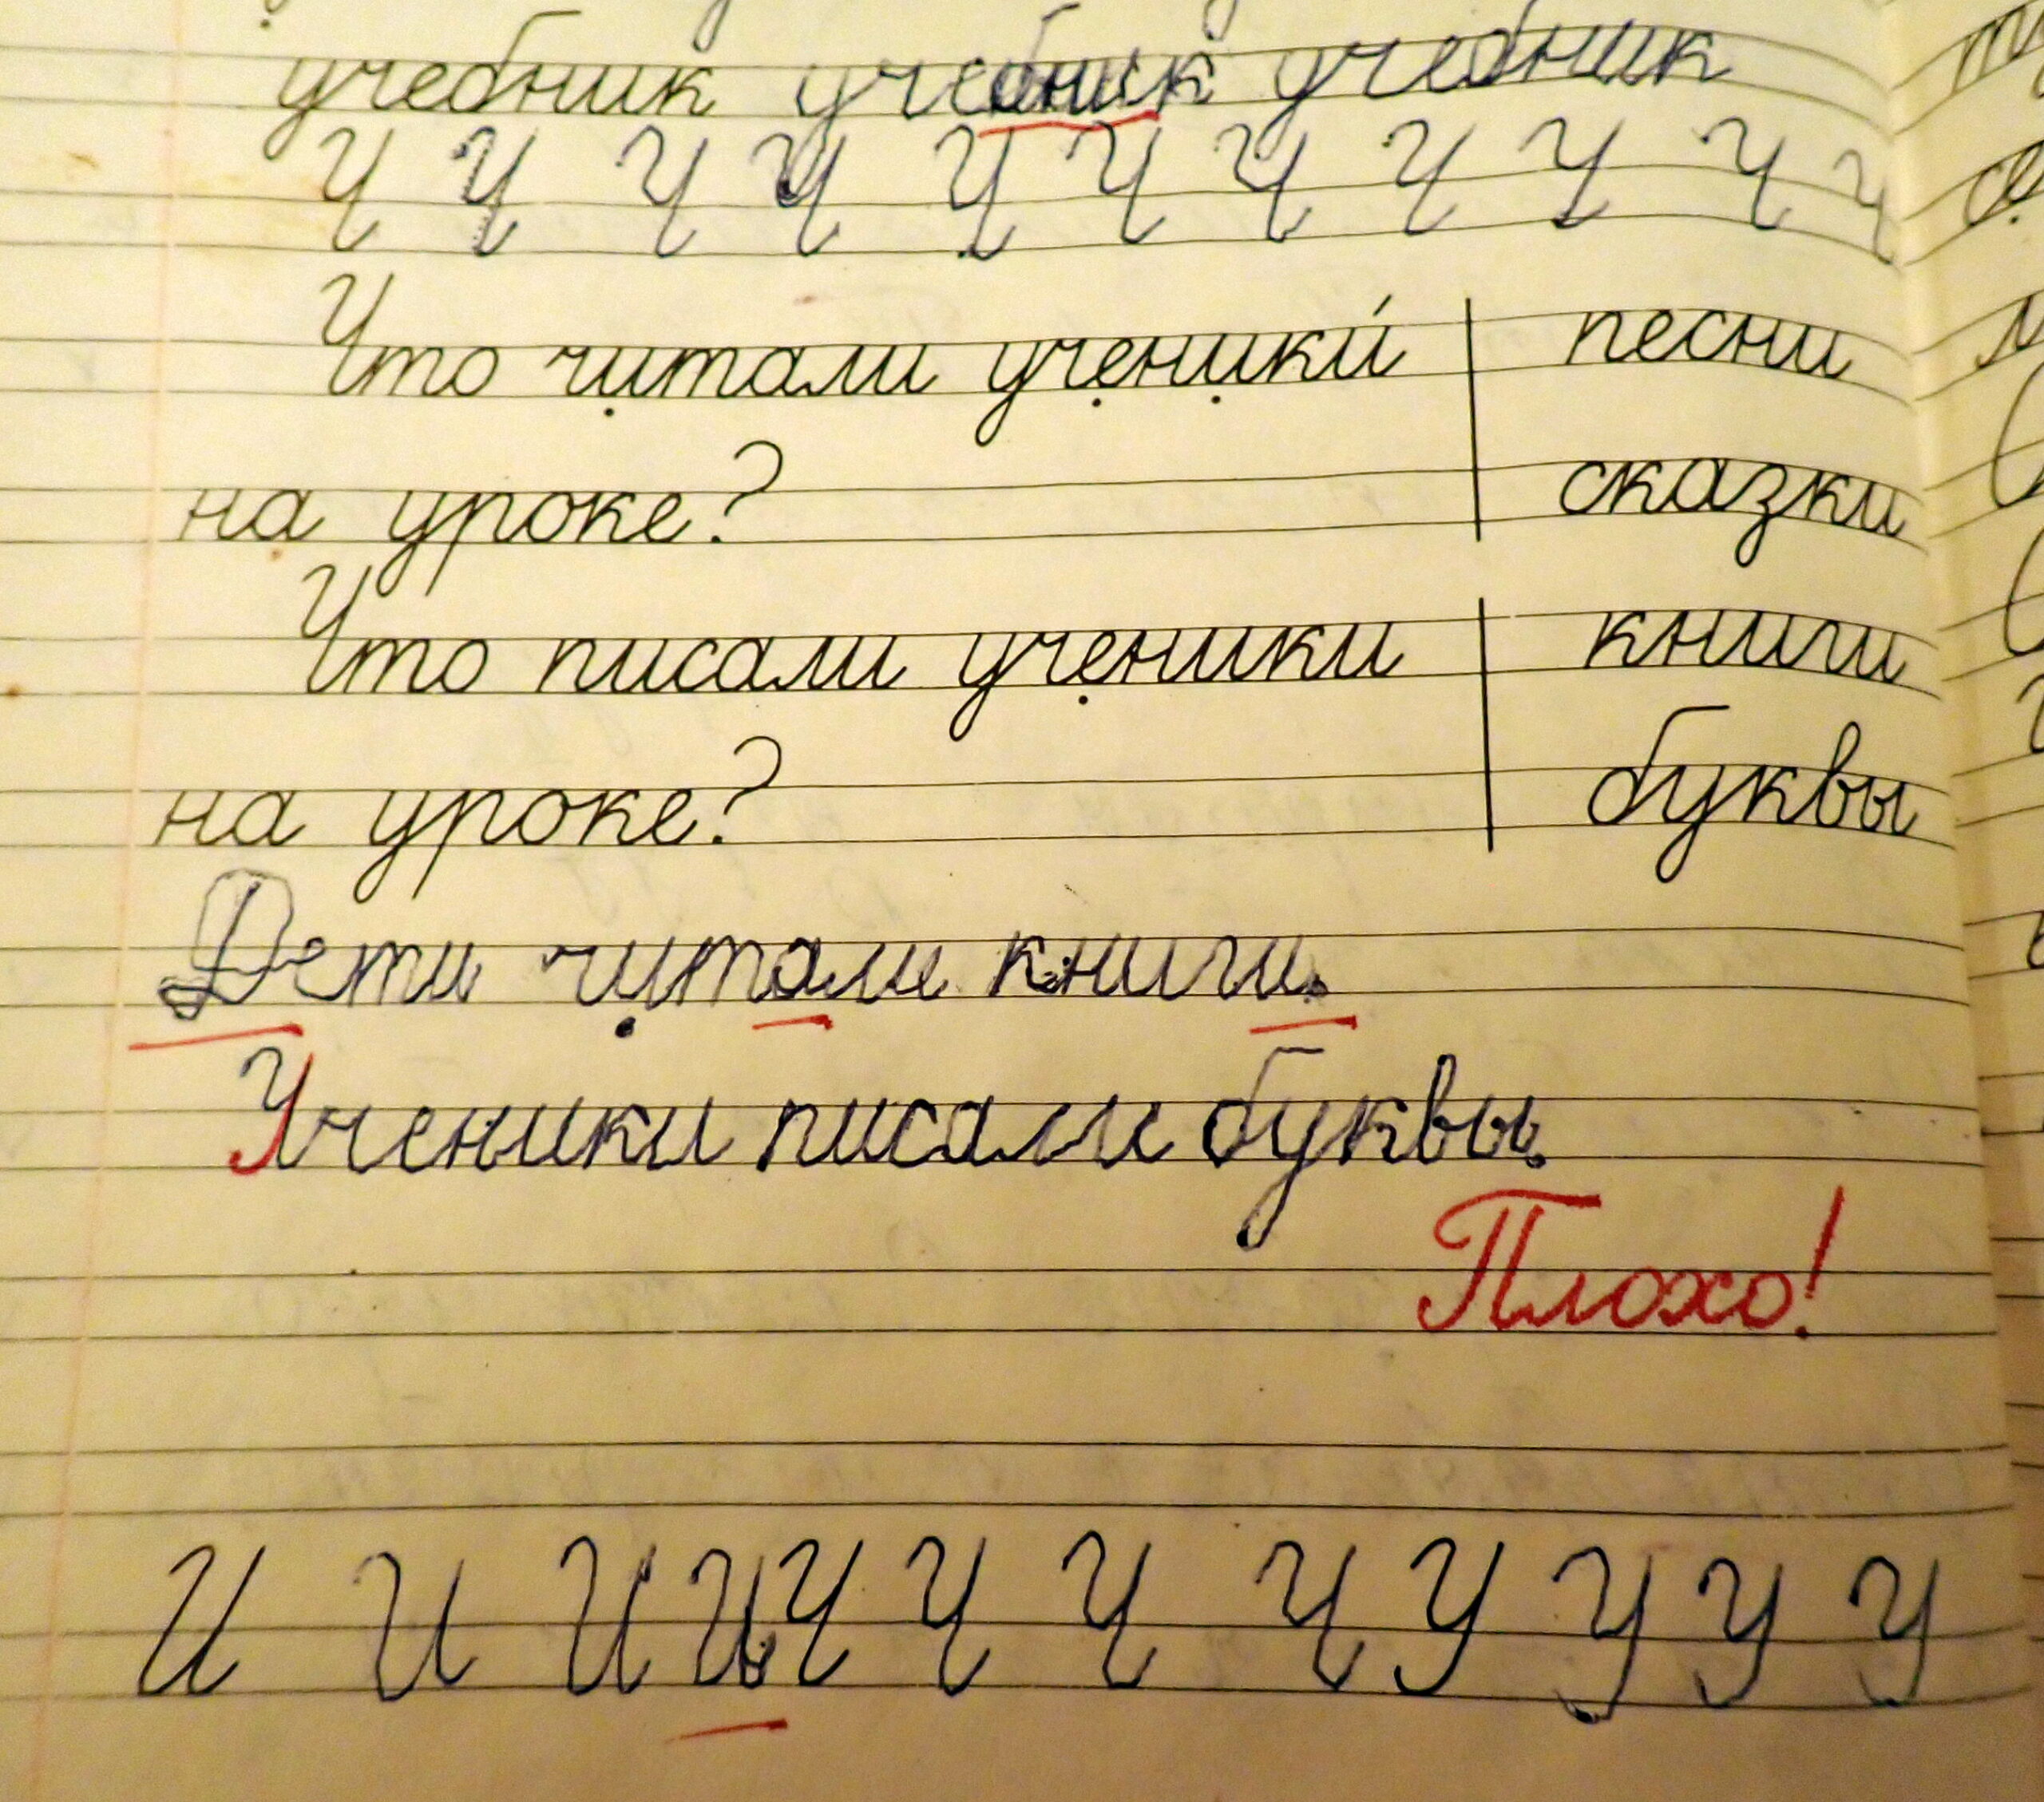 учебник учебник учебник
Ч Ч Ч Ч Ч Ч Ч Ч Ч Ч Ч
Что читали ученики́ | песни
на уроке? | сказки
Что писали ученики | книги
на уроке? | буквы
Дети читали книги.
Ученики писали буквы.
Плохо!
И И И И Ч Ч Ч Ч У У У У